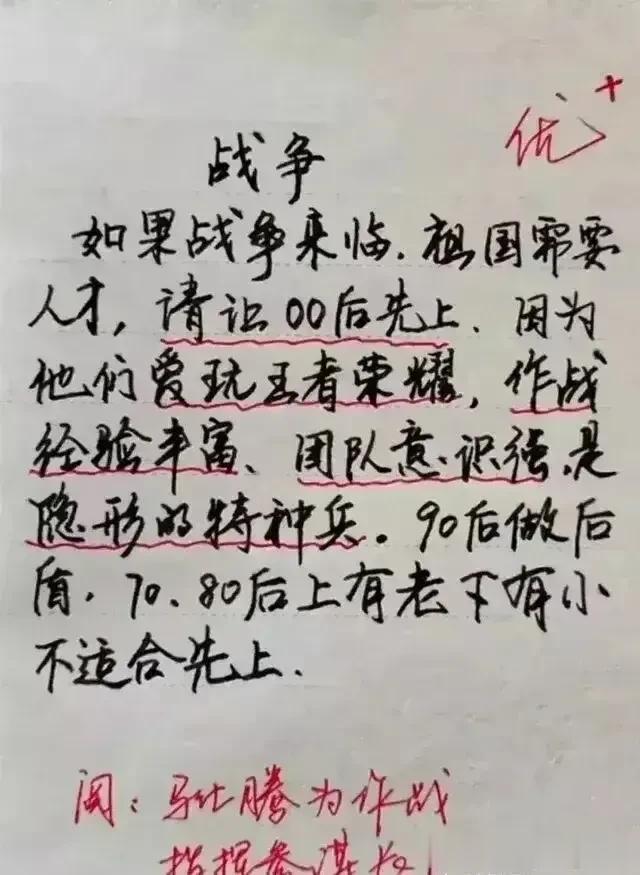 优+
战争
如果战争来临.祖国需要
人才，请让00后先上、因为
他们爱玩王者荣耀，作战
经验丰富、团队意识强.是
隐形的特种兵。90后做后
盾.70、80后上有老下有小
不适合先上.
阅：马化腾为作战
指挥参谋长